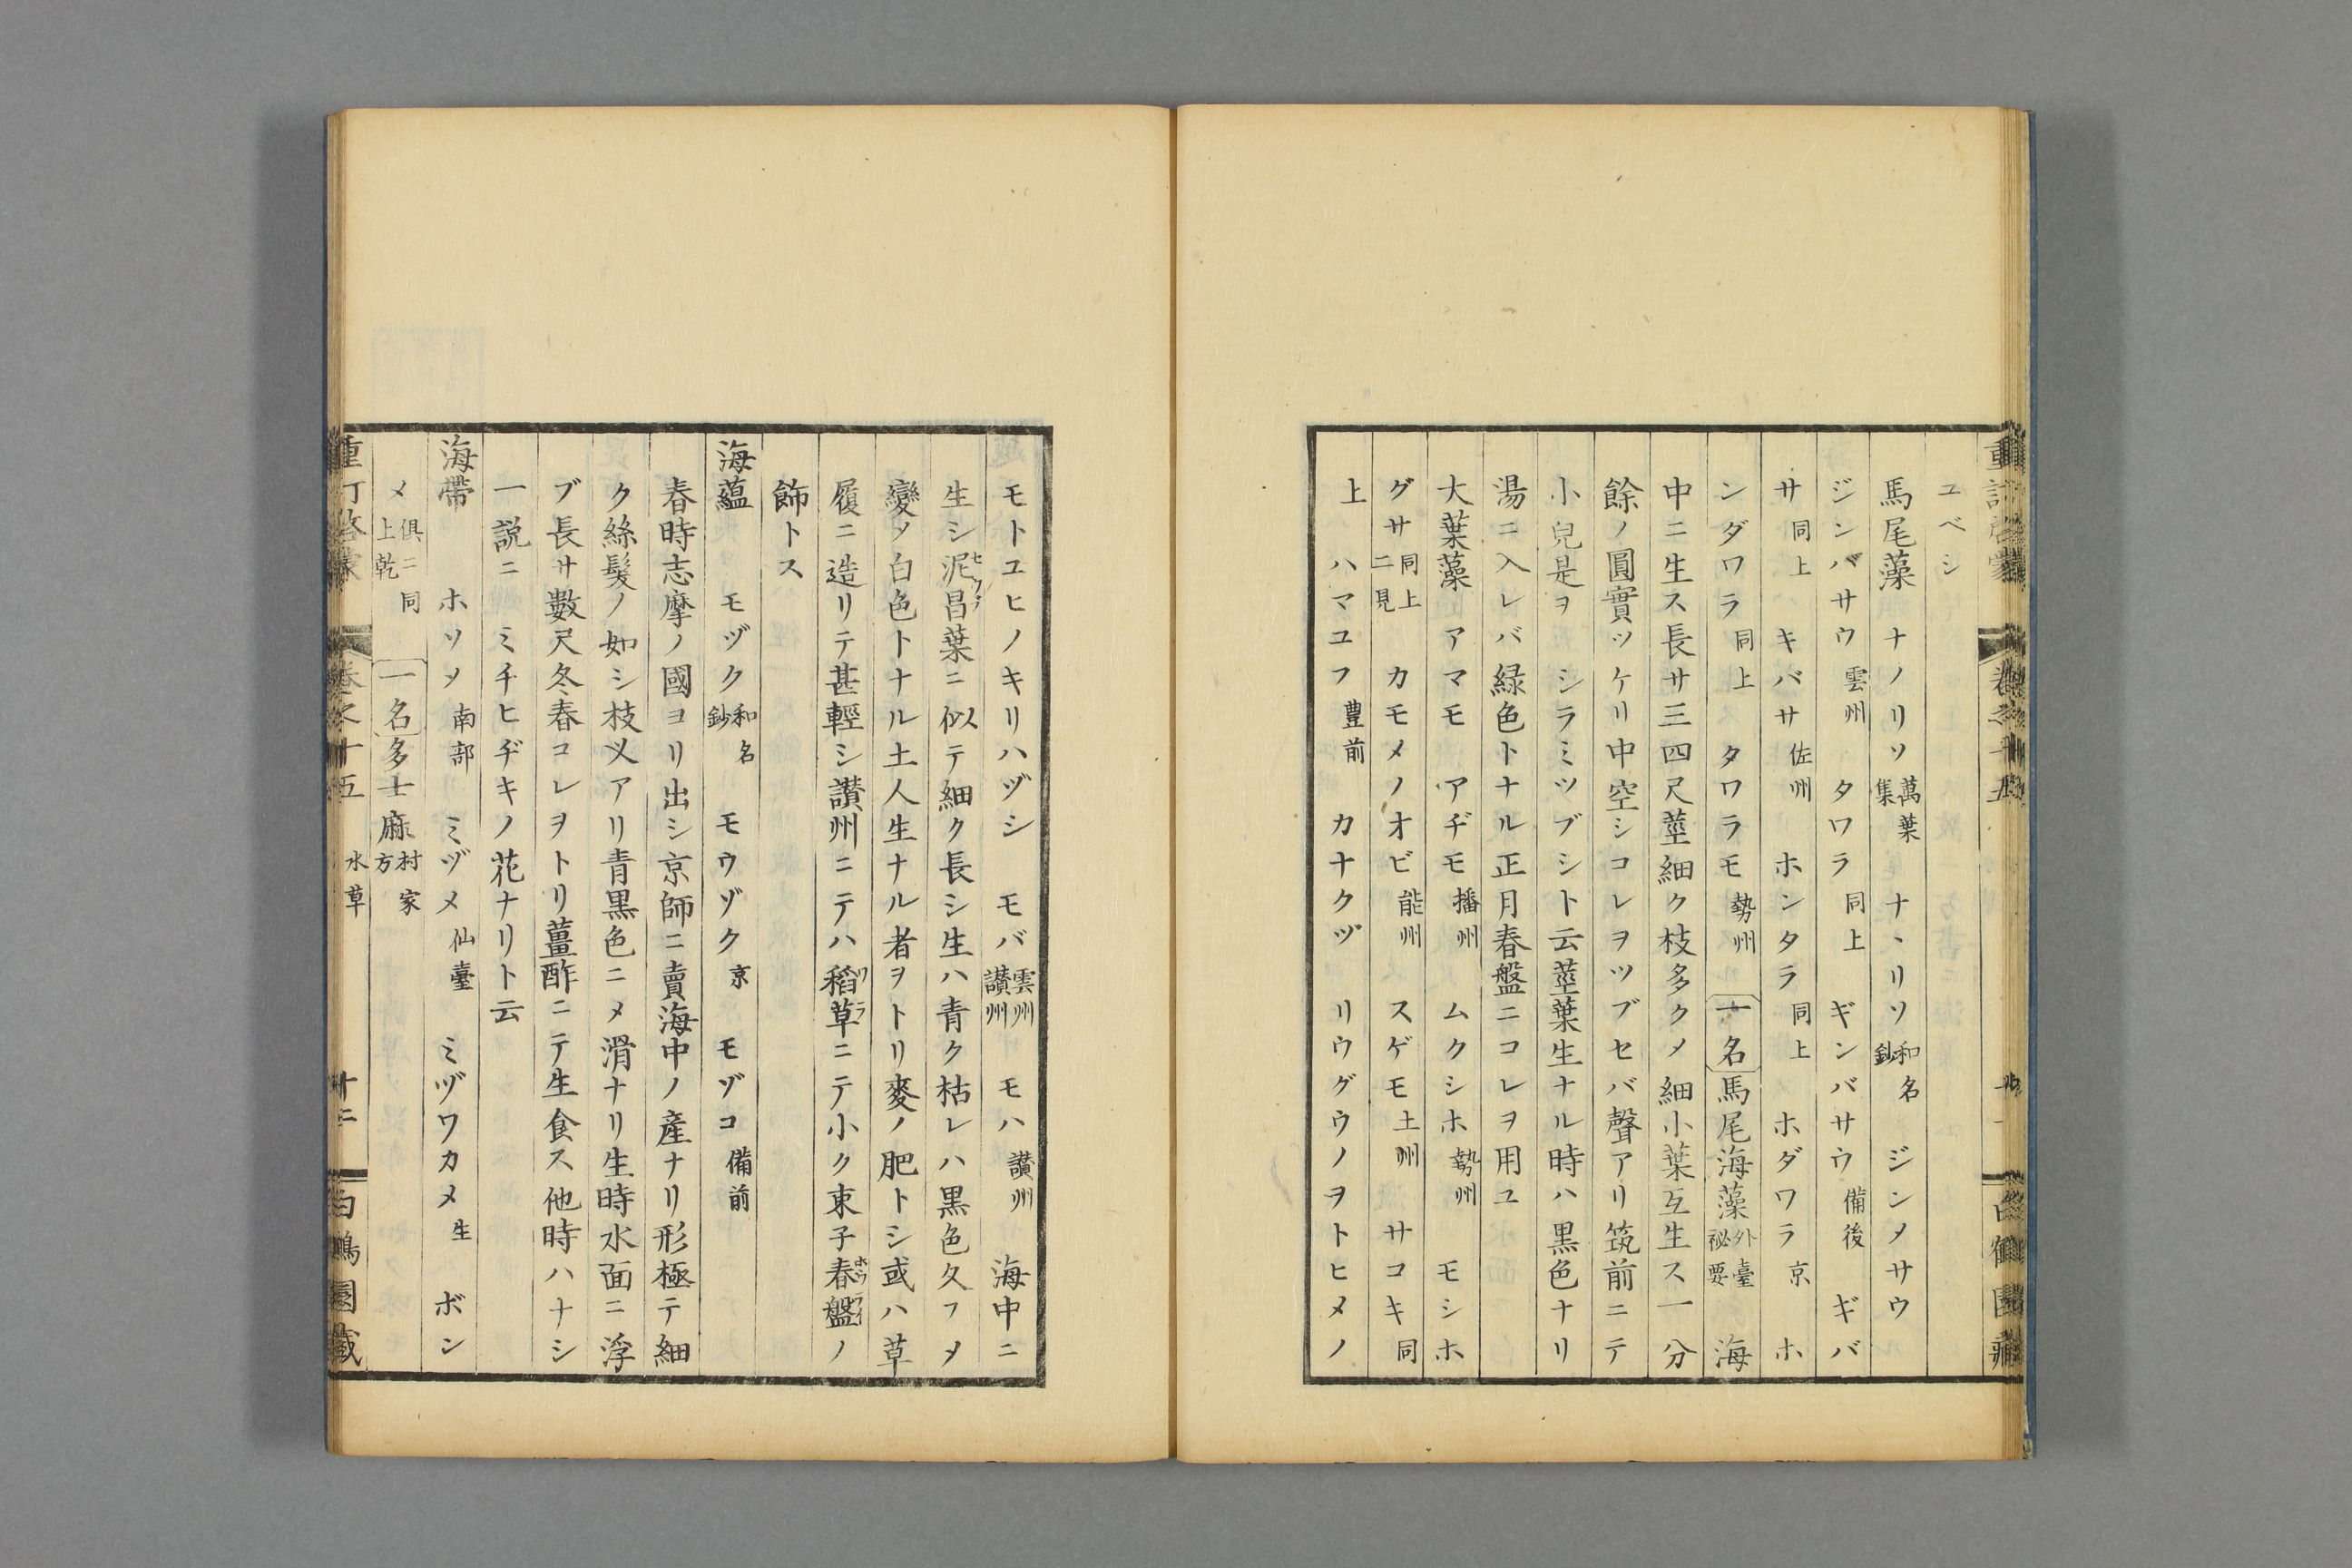 ユベシ
馬尾藻 ナノリソ 萬葉集 ナヽリソ 和名鈔 ジンメサウ
ジンバサウ 雲州 タワラ 同上 ギンバサウ 備後 ギバ
サ 同上 キバサ 佐州 ホンタラ 同上 ホダワラ 京 ホ
ンダワラ 同上 タワラモ 勢州 一名 馬尾海藻 外臺祕要 海
中ニ生ス長サ三四尺莖細ク枝多クメ細小葉互生ス一分
餘ノ圓實ツケリ中空シコレヲツブセバ聲アリ筑前ニテ
小兒是ヲ シラミツブシト云莖葉生ナル時ハ黒色ナリ
湯ニ入レバ緑色トナル正月春盤ニコレヲ用ユ
大葉藻 アマモ アヂモ 播州 ムクシホ 勢州 モシホ
グサ 同上二見 カモメノオビ 能州 スゲモ 土州 サコキ 同
上 ハマユフ 豊前 カナクヅ リウグウノヲトヒメノ
モトユヒノキリハヅシ モバ 雲州讃州 モハ 讃州 海中ニ
生シ泥昌葉ニ似テ細ク長シ生ハ青ク枯レハ黒色久フメ
變ノ白色トナル土人生ナル者ヲトリ麥ノ肥トシ或ハ草
履ニ造リテ甚輕シ讃州ニテハ稻草ニテ小ク束子春盤ノ
飾トス
海蘊 モヅク 和名鈔 モウヅク 京 モヅコ 備前
春時志摩ノ國ヨリ出シ京師ニ賣海中ノ産ナリ形極テ細
ク絲髮ノ如シ枝乂アリ青黒色ニメ滑ナリ生時水面ニ浮
ブ長サ數尺冬春コレヲトリ薑酢ニテ生食ス他時ハナシ
一説ニ ミチヒヂキノ花ナリト云
海帶 ホソメ 南部 ミヅメ 仙臺 ミヅワカメ 生 ボン
メ 俱ニ同上乾 一名 多士麻 村家方
卷之十五 水草 十二 白鶴園藏